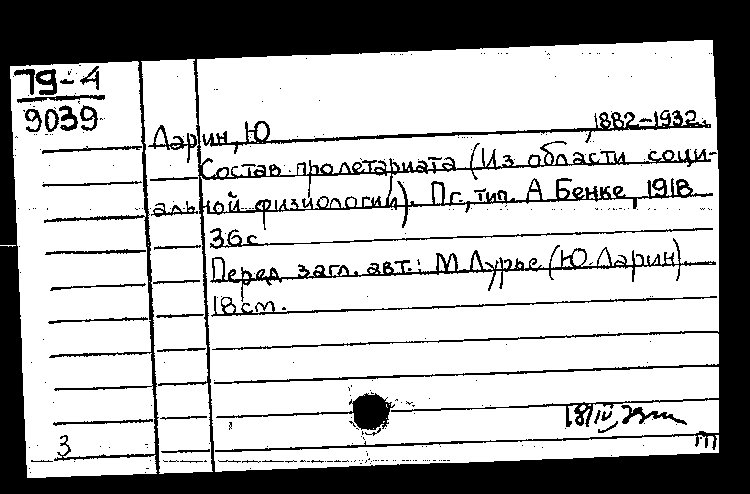 79-4
9039
Ларин, Ю 1882-1932.
Состав пролетариата (Из области соци-
альной физиологии). Пг., тип. А Бенке, 1918
36с
Перед загл. авт.: М Лурье (Ю. Ларин).
18 см.
18/IV
3 т